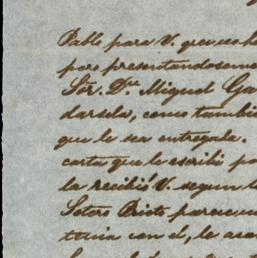 Pablo para V. que
pero presentandoseme
Sõr. Dn. Miguel Ga
darsela, como tambi
que le sea entregada.
carta que le escribi po
la recibió V. segun l
Sotero Prieto parece
tenia con el, le